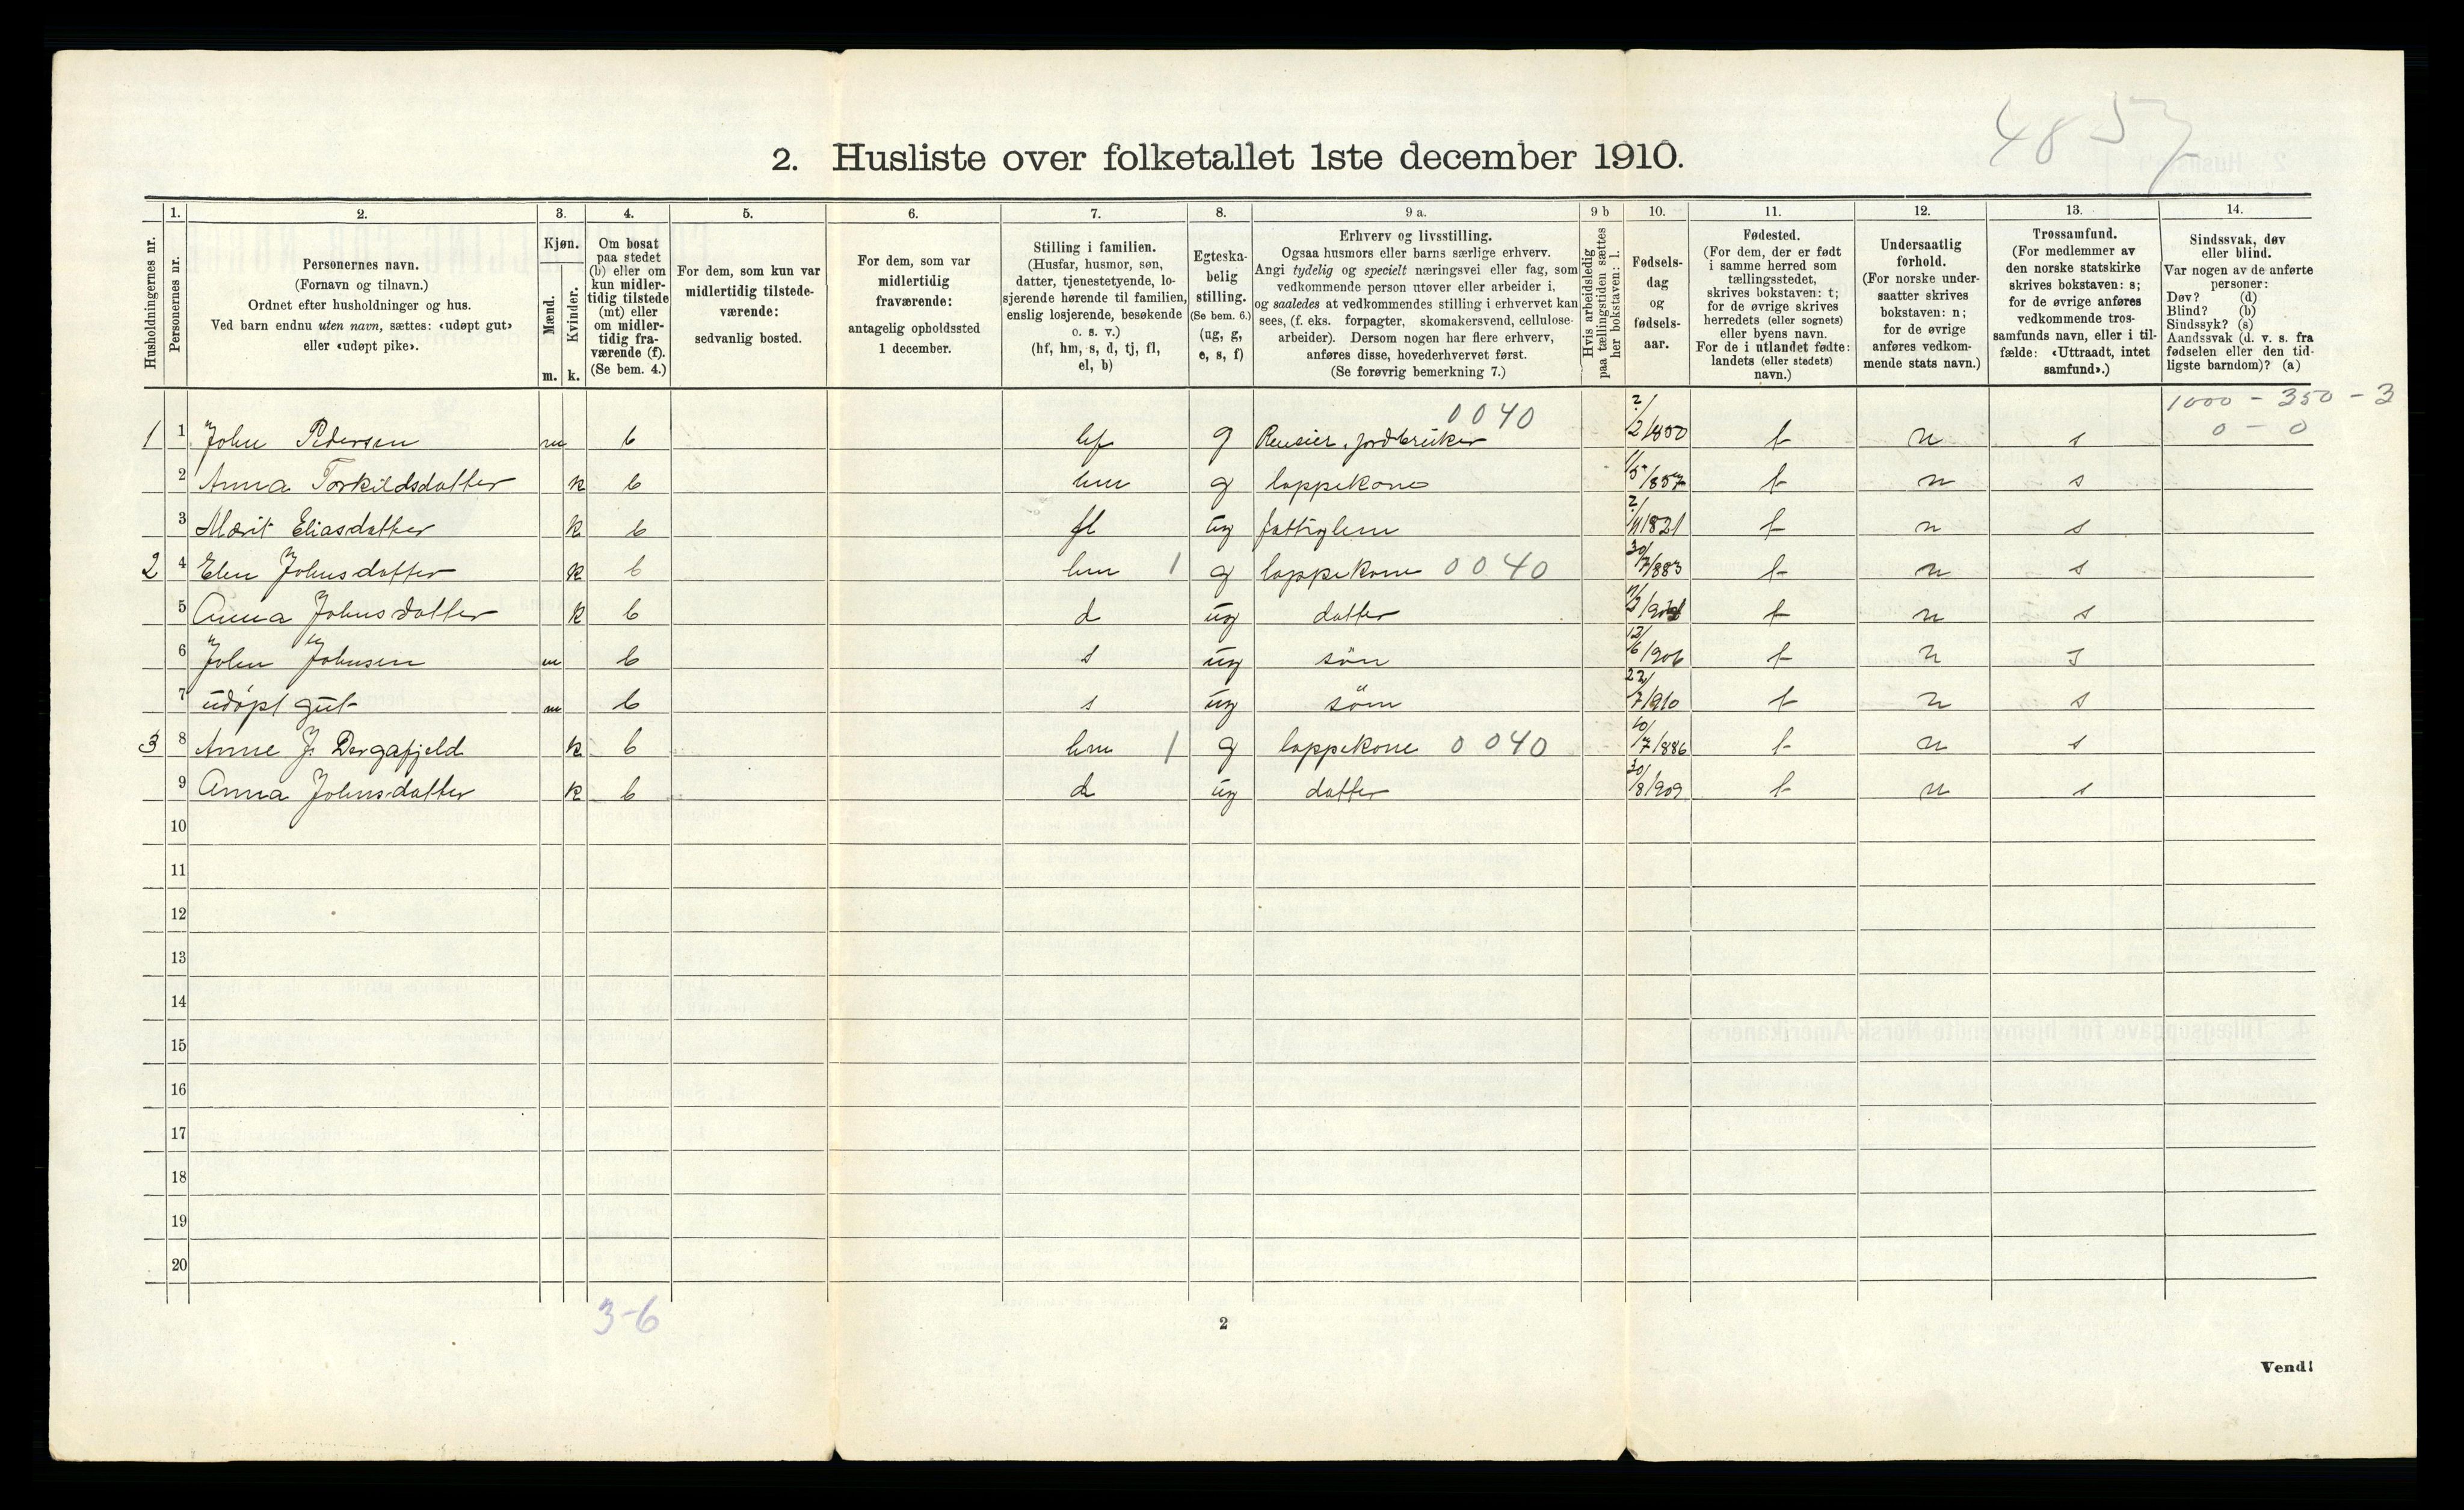 4857
2. Husliste over folketallet 1ste december 1910.
Husholdningernes nr.
1. Personernes nr.
2. Personernes navn.
(Fornavn og tilnavn.)
Ordnet efter husholdninger og hus.
Ved barn endnu uten navn, sættes: «udøpt gut»
eller «udøpt pike».
3. Kjøn.
Mænd. m.
Kvinder. k.
4. Om bosat
paa stedet
(b) eller om
kun midler-
tidig tilstede
(mt) eller
om midler-
tidig fra-
værende (f).
(Se bem. 4.)
5. For dem, som kun var
midlertidig tilstede-
værende:
sedvanlig bosted.
6. For dem, som var
midlertidig
fraværende:
antagelig opholdssted
1 december.
7. Stilling i familien.
(Husfar, husmor, søn,
datter, tjenestetyende, lo-
sjerende hørende til familien,
enslig losjerende, besøkende
o. s. v.)
(hf, hm, s, d, tj, fl,
el, b)
8. Egteska-
belig
stilling.
(Se bem. 6.)
(ug, g,
e, s, f)
9 a. Erhverv og livsstilling.
Ogsaa husmors eller barns særlige erhverv.
Angi tydelig og specielt næringsvei eller fag, som
vedkommende person utøver eller arbeider i,
og saaledes at vedkommendes stilling i erhvervet kan
sees, (f. eks. forpagter, skomakersvend, cellulose-
arbeider). Dersom nogen har flere erhverv,
anføres disse, hovederhvervet først.
(Se forøvrig bemerkning 7.)
9 b Hvis arbeidsledig
paa tællingstiden sættes
her bokstaven: l.
10. Fødsels-
dag
og
fødsels-
aar.
11. Fødested.
(For dem, der er født
i samme herred som
tællingsstedet,
skrives bokstaven: t;
for de øvrige skrives
herredets (eller sognets)
eller byens navn.
For de i utlandet fødte:
landets (eller stedets)
navn.)
12. Undersaatlig
forhold.
(For norske under-
saatter skrives
bokstaven: n;
for de øvrige
anføres vedkom-
mende stats navn.)
13. Trossamfund.
(For medlemmer av
den norske statskirke
skrives bokstaven: s;
for de øvrige anføres
vedkommende tros-
samfunds navn, eller i til-
fælde: «Uttraadt, intet
samfund».)
14. Sindssvak, døv
eller blind.
Var nogen av de anførte
personer:
Døv? (d)
Blind? (b)
Sindssyk? (s)
Aandssvak (d. v. s. fra
fødselen eller den tid-
ligste barndom)? (a)
1000 - 350 - 3
0 - 0
0040
1 1 John Pedersen m b hf g jordbruker t n s
2 Anna Torkildsdatter k b hm g lappekone t n s
3 Marit Eliasdatter k b fl ug fattiglem 1821 t n s
2 4 Elen Johnsdatter k b hm 1 g lappekone 0040 30/7/883 t n s
5 Anna Johnsdatter k b d ug datter t n s
6 John Johnsen m b s ug sön 12/6/906 t n s
7 udöpt gut m b s ug sön 22/7/910 t n s
3 8 Anne J. Dergafjeld k b hm 1 g lappekone 0040 10/7/886 t n s
9 Anna Johnsdatter k b d ug datter 30/8/909 t n s
10
11
12
13
14
15
16
17
18
19
20
3-6
2
Vend!